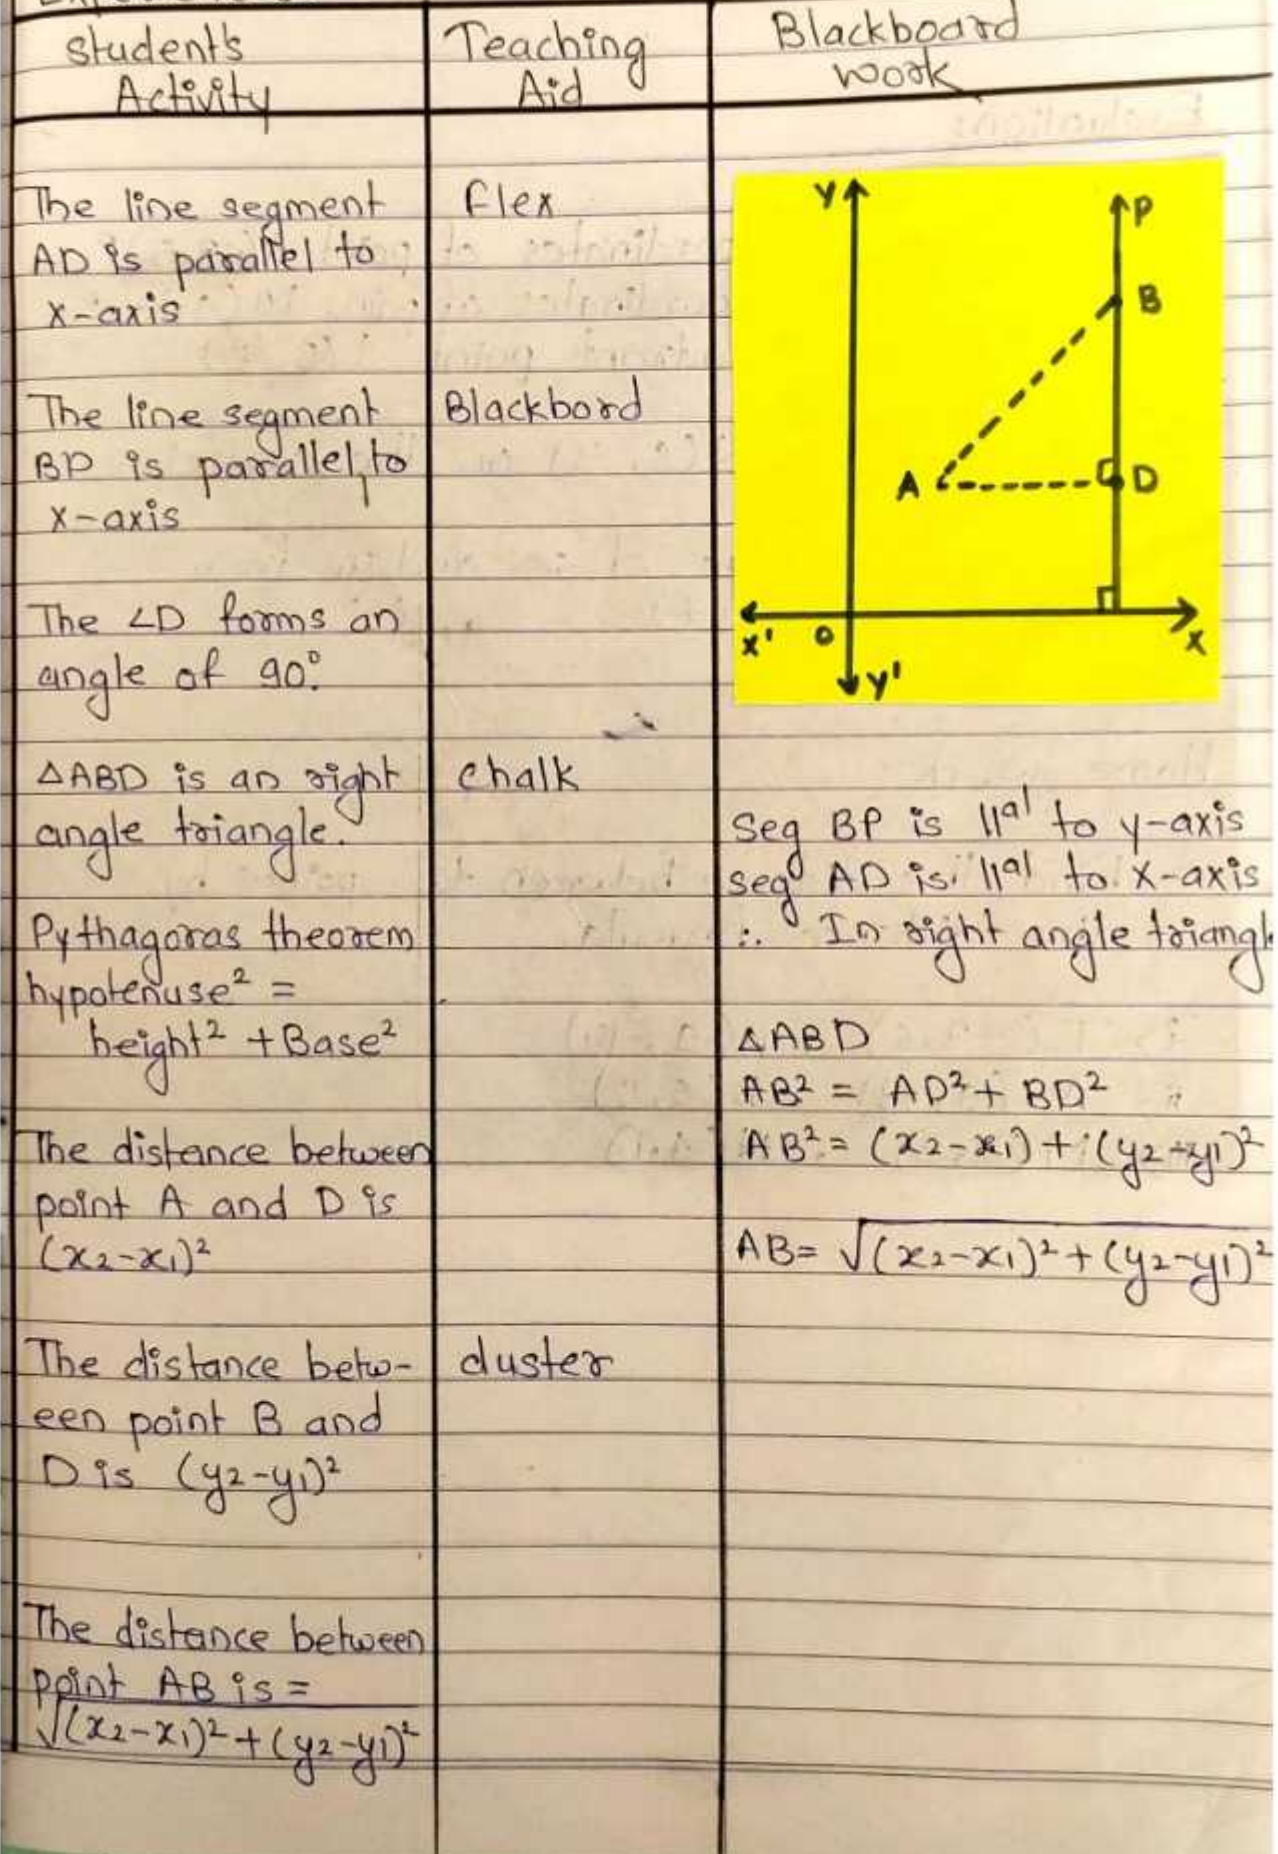 Student's
Activity
Teaching
Aid
Blackboard
work
The line segment
AD is parallel to
x-axis
The line segment
BP is parallel to
x-axis
The ∠D forms an
angle of 90°.
△ABD is an right
angle triangle.
Pythagoras theorem
hypotenuse² =
height² + Base²
The distance between
point A and D is
(x₂-x₁)²
The distance betw-
een point B and
D is (y₂-y₁)²
The distance between
point AB is =
√(x₂-x₁)²+(y₂-y₁)²
flex
Blackbord
chalk
duster
Y
P
B
A
D
X'
O
X
Y'
Seg BP is ||al to y-axis
seg AD is ||al to x-axis
∴ In right angle triangl
△ABD
AB² = AD² + BD²
AB² = (x₂-x₁) + (y₂-y₁)²
AB = √(x₂-x₁)²+(y₂-y₁)²